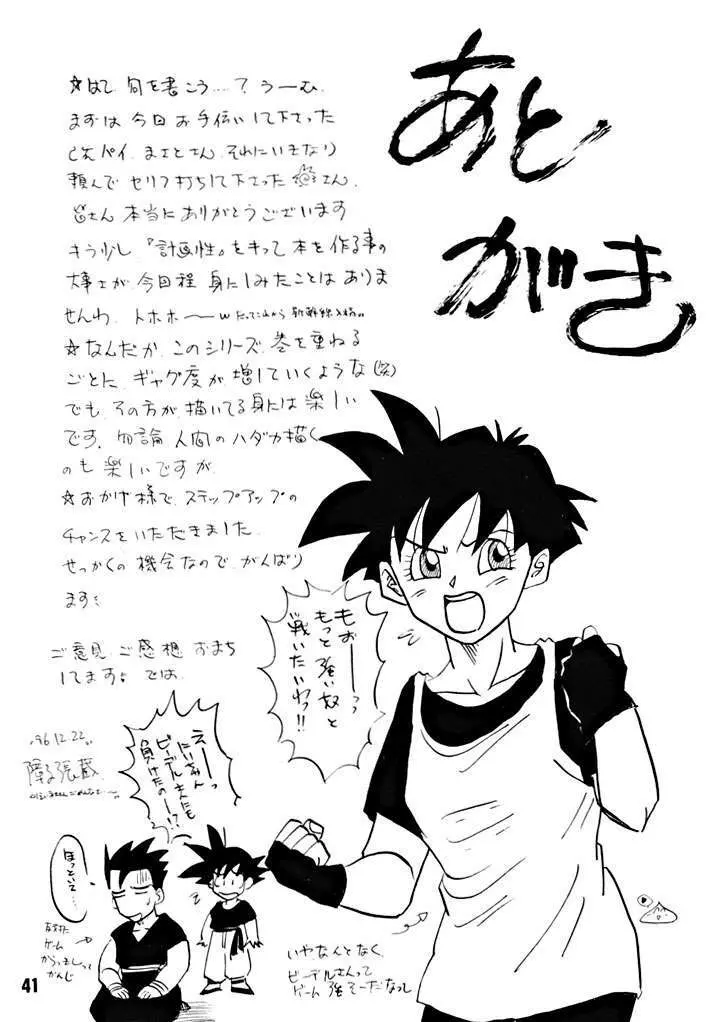 あと
がき
☆はて、何を書こう……？うーむ。
まずは今回お手伝いして下さった
パイ、まさとさん、それにいきなり
頼んでセリフ打ちして下さった さん、
皆さん本当にありがとうございます
もう少し『計画性』をもって本を作る事の
大事さが今回程身にしみたことはありま
せんわ、トホホ〜〜w
☆なんだか、このシリーズ、巻を重ねる
ごとに、ギャグ度が増していくような(笑)
でも、その方が、描いてる身には楽しい
です。勿論人間のハダカ描く
のも楽しいですが。
☆おかげ様で、ステップアップの
チャンスをいただきました。
せっかくの機会なので、がんばり
ます
ご意見、ご感想おまち
してます。では。
'96.12.22.
障子張蔵
もぉーーっっ
もっと強い奴と
戦いたいわっ!!
えーーっ
にいちゃん
ビーデルさんにも
負けたのー!?
ほっといて…
ゲーム
がんじ
いやなんとなく、
ビーデルさんって
ゲーム強そーだなって
41